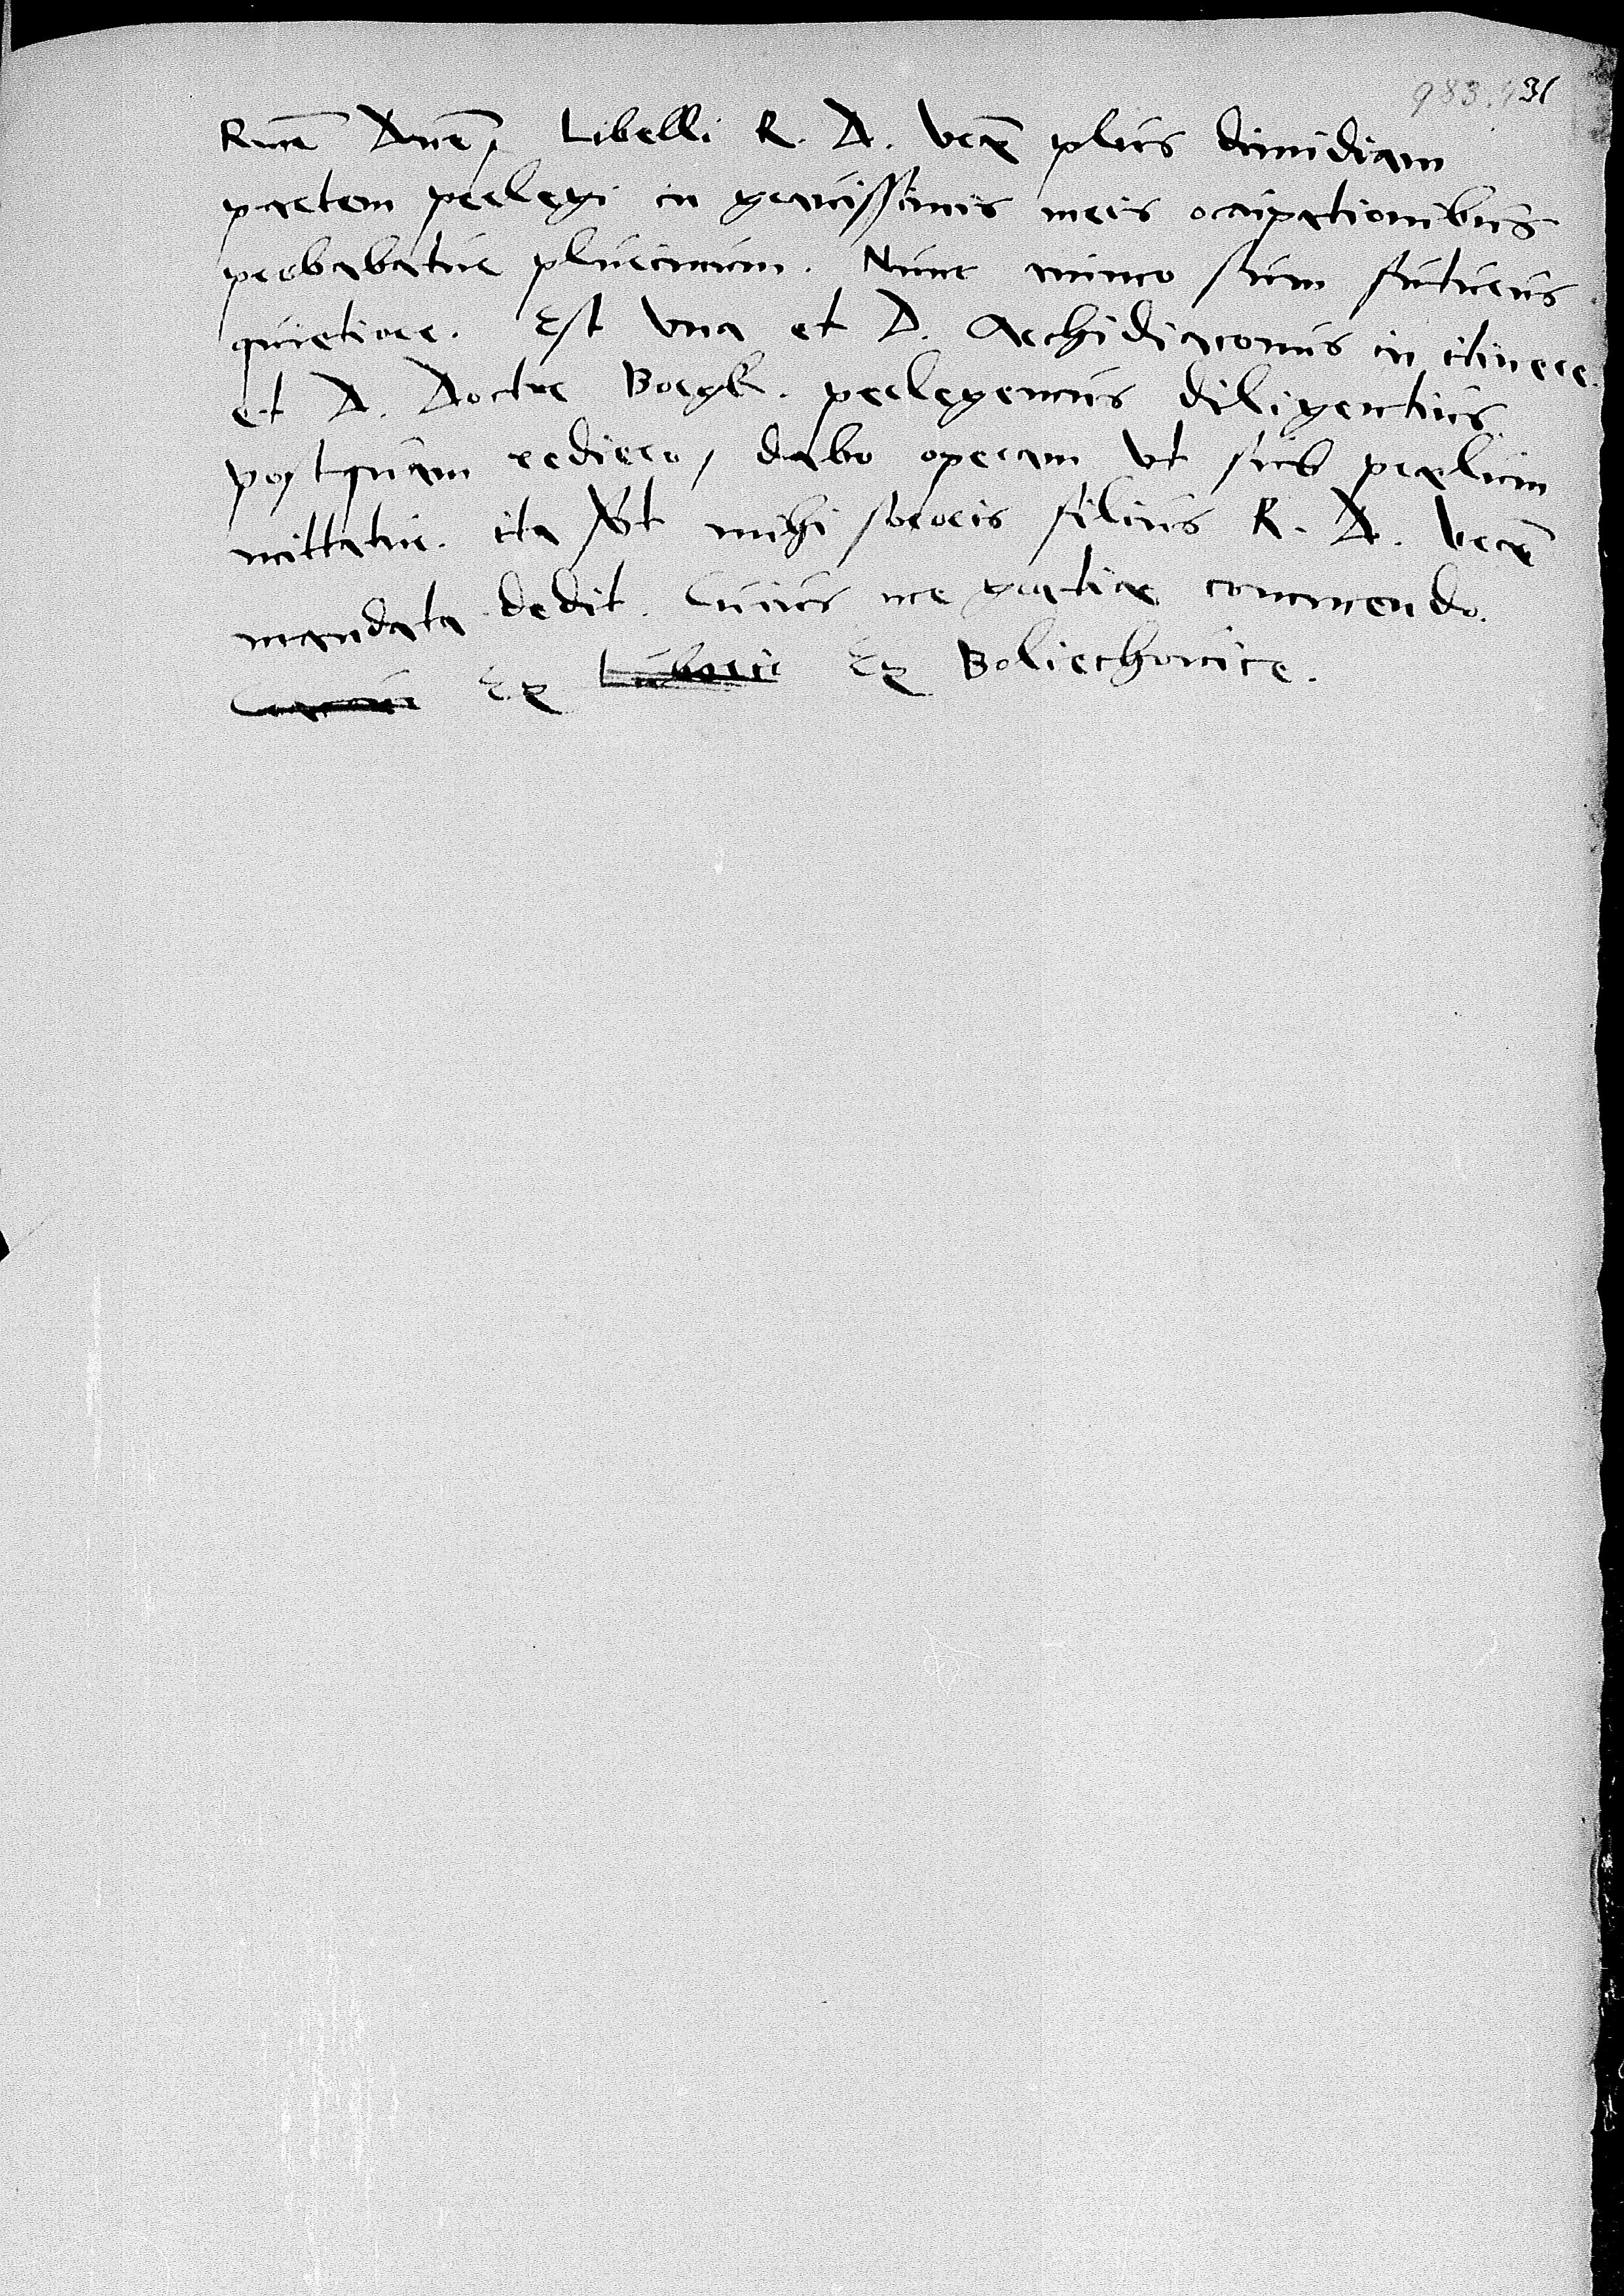 983. 31
Rme Dne, Libelli R. D. vrae plus dimidiam
partem perlegi in gravissimis meis occupationibus
probabatur plurimum. Nunc animo sum futurus
quietiore. Est una et D. Archidiaconus in itinere.
et D. Doctor Borgk. perlegemus diligentius
postquam rediero, dabo operam ut sub praelum
mittatur. ita ut mihi sororis filius R. D. vrae
mandata dedit. Cuius me gratiae commendo.
Ex Ex Boliechovice.